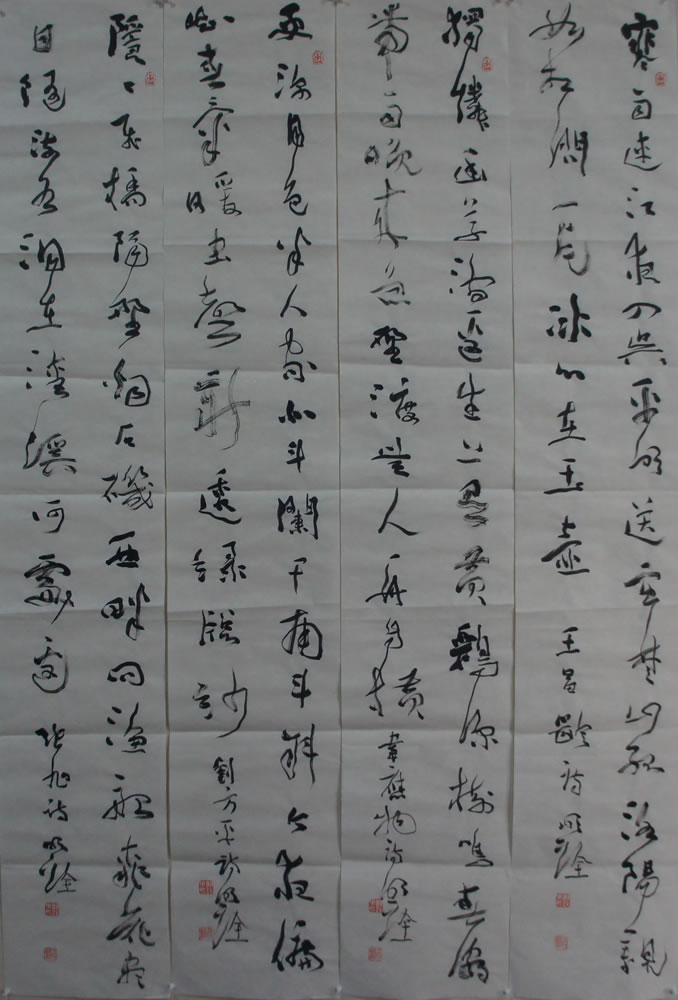 寒雨連江夜入吳平明送客楚山孤洛陽親
如相問一片冰心在玉壺 王昌齡詩 明銓
獨憐幽草澗邊生上有黃鸝深樹鳴春潮
帶雨晚來急野渡無人舟自橫 韋應物詩 明銓
更深月色半人家北斗闌干南斗斜今夜偏
知春氣暖蟲聲新透綠牕紗 劉方平詩 明銓
隱々飛橋隔野煙石磯西畔問漁船桃花盡
日隨流水洞在清溪何處邊 張旭詩 明銓